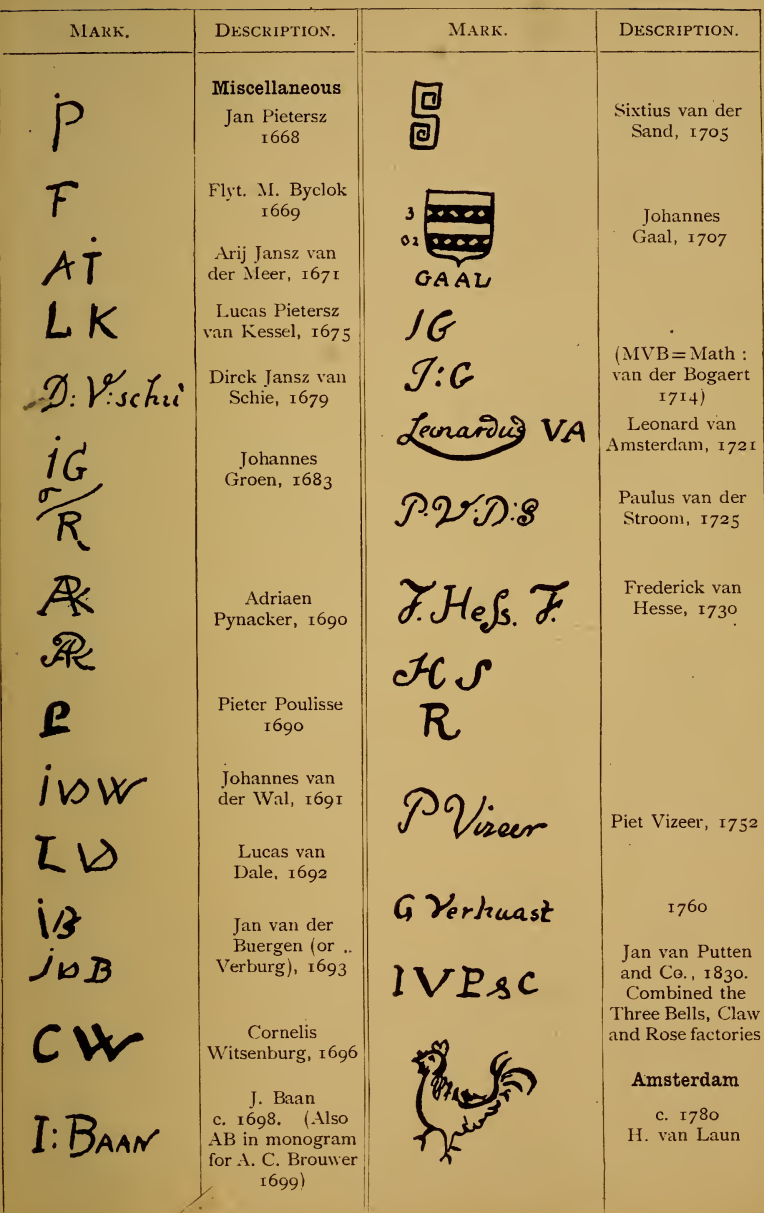 MARK. DESCRIPTION. MARK. DESCRIPTION.
Miscellaneous
P
Jan Pietersz
1668
F
Flyt. M. Byclok
1669
AI
Arij Jansz van
der Meer, 1671
L K
Lucas Pietersz
van Kessel, 1675
D: V:schii
Dirck Jansz van
Schie, 1679
iG
R
Johannes
Groen, 1683
AK
Adriaen
Pynacker, 1690
P
Pieter Poulisse
1690
ivW
Johannes van
der Wal, 1691
L VD
Lucas van
Dale, 1692
iB
JvB
Jan van der
Buergen (or ..
Verburg), 1693
C W
Cornelis
Witsenburg, 1696
I: BAAN
J. Baan
c. 1698. (Also
AB in monogram
for A. C. Brouwer
1699)
Sixtius van der
Sand, 1705
3
02
GAAL
Johannes
Gaal, 1707
IG
J:G
(MVB = Math :
van der Bogaert
1714)
Leonardus VA
Leonard van
Amsterdam, 1721
P.V:D:S
Paulus van der
Stroom, 1725
F. Heſs. F.
Frederick van
Hesse, 1730
H S
R
P Vizeer
Piet Vizeer, 1752
G Verhaast
1760
IVP&C
Jan van Putten
and Co., 1830.
Combined the
Three Bells, Claw
and Rose factories
Amsterdam
c. 1780
H. van Laun